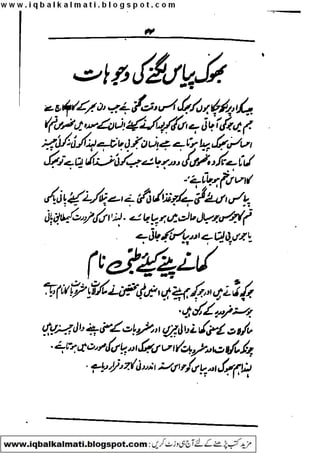 www.iqbalkalmati.blogspot.com
بھوک پیاس لگنے کی وجوہات
جیسا کہ اوپر لکھ چکا ہوں کہ بھوک اس وقت لگتی ہے جب دن بھر کے کام کاج سے
جسم میں جو کمی آ جاتی ہے اس کی کو پورا کرنے کے لئے انسان کے معدہ میں مخصوص قسم کا
احساس بھوک پیدا ہوتا ہے جسے انسان بخوبی جانتا ہے لہذا کوئی نہ کوئی چیز
کھاتا ہے تاکہ وہ مخصوص کمی دور ہو جائے جب کوئی غذا کھا لیتا ہے تو بھوک
کا احساس ختم ہو جاتا ہے۔
پیاس اس لئے لگتی ہے کہ جو غذا کھائی گئی ہے اسے پتلا کرنے کے لئے پانی یا کسی
قسم کا جوس جو سیال حالت میں ہو پیا جائے۔ لہذا اس کی ضرورت کے مطابق پانی
یا جوس پی لیتا ہے اور پیاس بجھ جاتی ہے
کھانے پینے کیلئے طبی نام
جو کچھ کھاتے ہیں اور جو کچھ ہم پیتے ہیں انہیں طبی محققین نے ماکولات یا مشروبات کا نام دیا ہے
جو ستہ ضروریہ کے رکن ہیں۔
ماکولات کے معنی کھانے والی چیزیں اور مشروبات کے معنی پینے والی چیزیں ہیں
چونکہ ماکولات اور مشروبات کا احساس بھوک اور پیاس کی صورت میں ہوتا ہے۔
لہذا ہم بھوک اور پیاس کو حواس اندرونی کا جزو قرار دیا ہے۔
مزید کتب پڑھنے کے لئے آج ہی وزٹ کریں : www.iqbalkalmati.blogspot.com